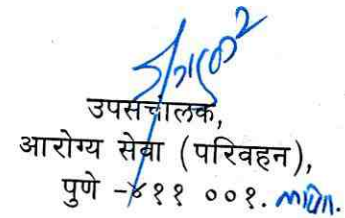 उपसंचालक,
आरोग्य सेवा (परिवहन),
पुणे -४११ ००१.